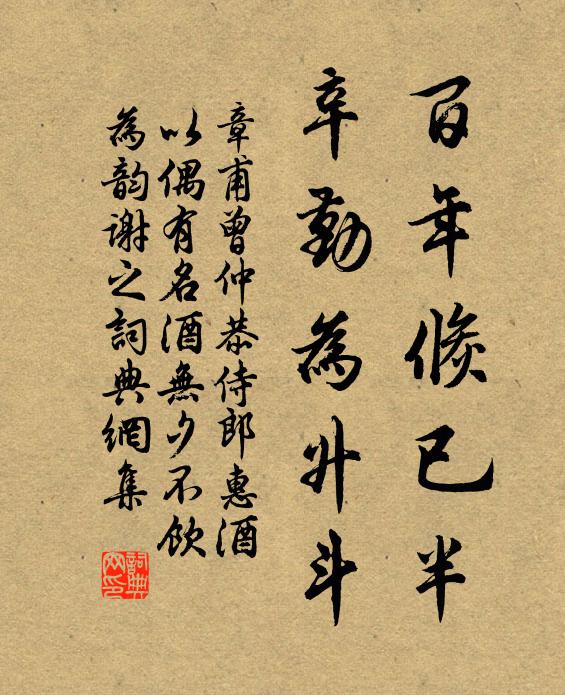 百年倏已半
辛勤為升斗
章甫曾仲恭侍郎惠酒
以偶有名酒無夕不飲
為韵谢之詞典網集
詞典網印